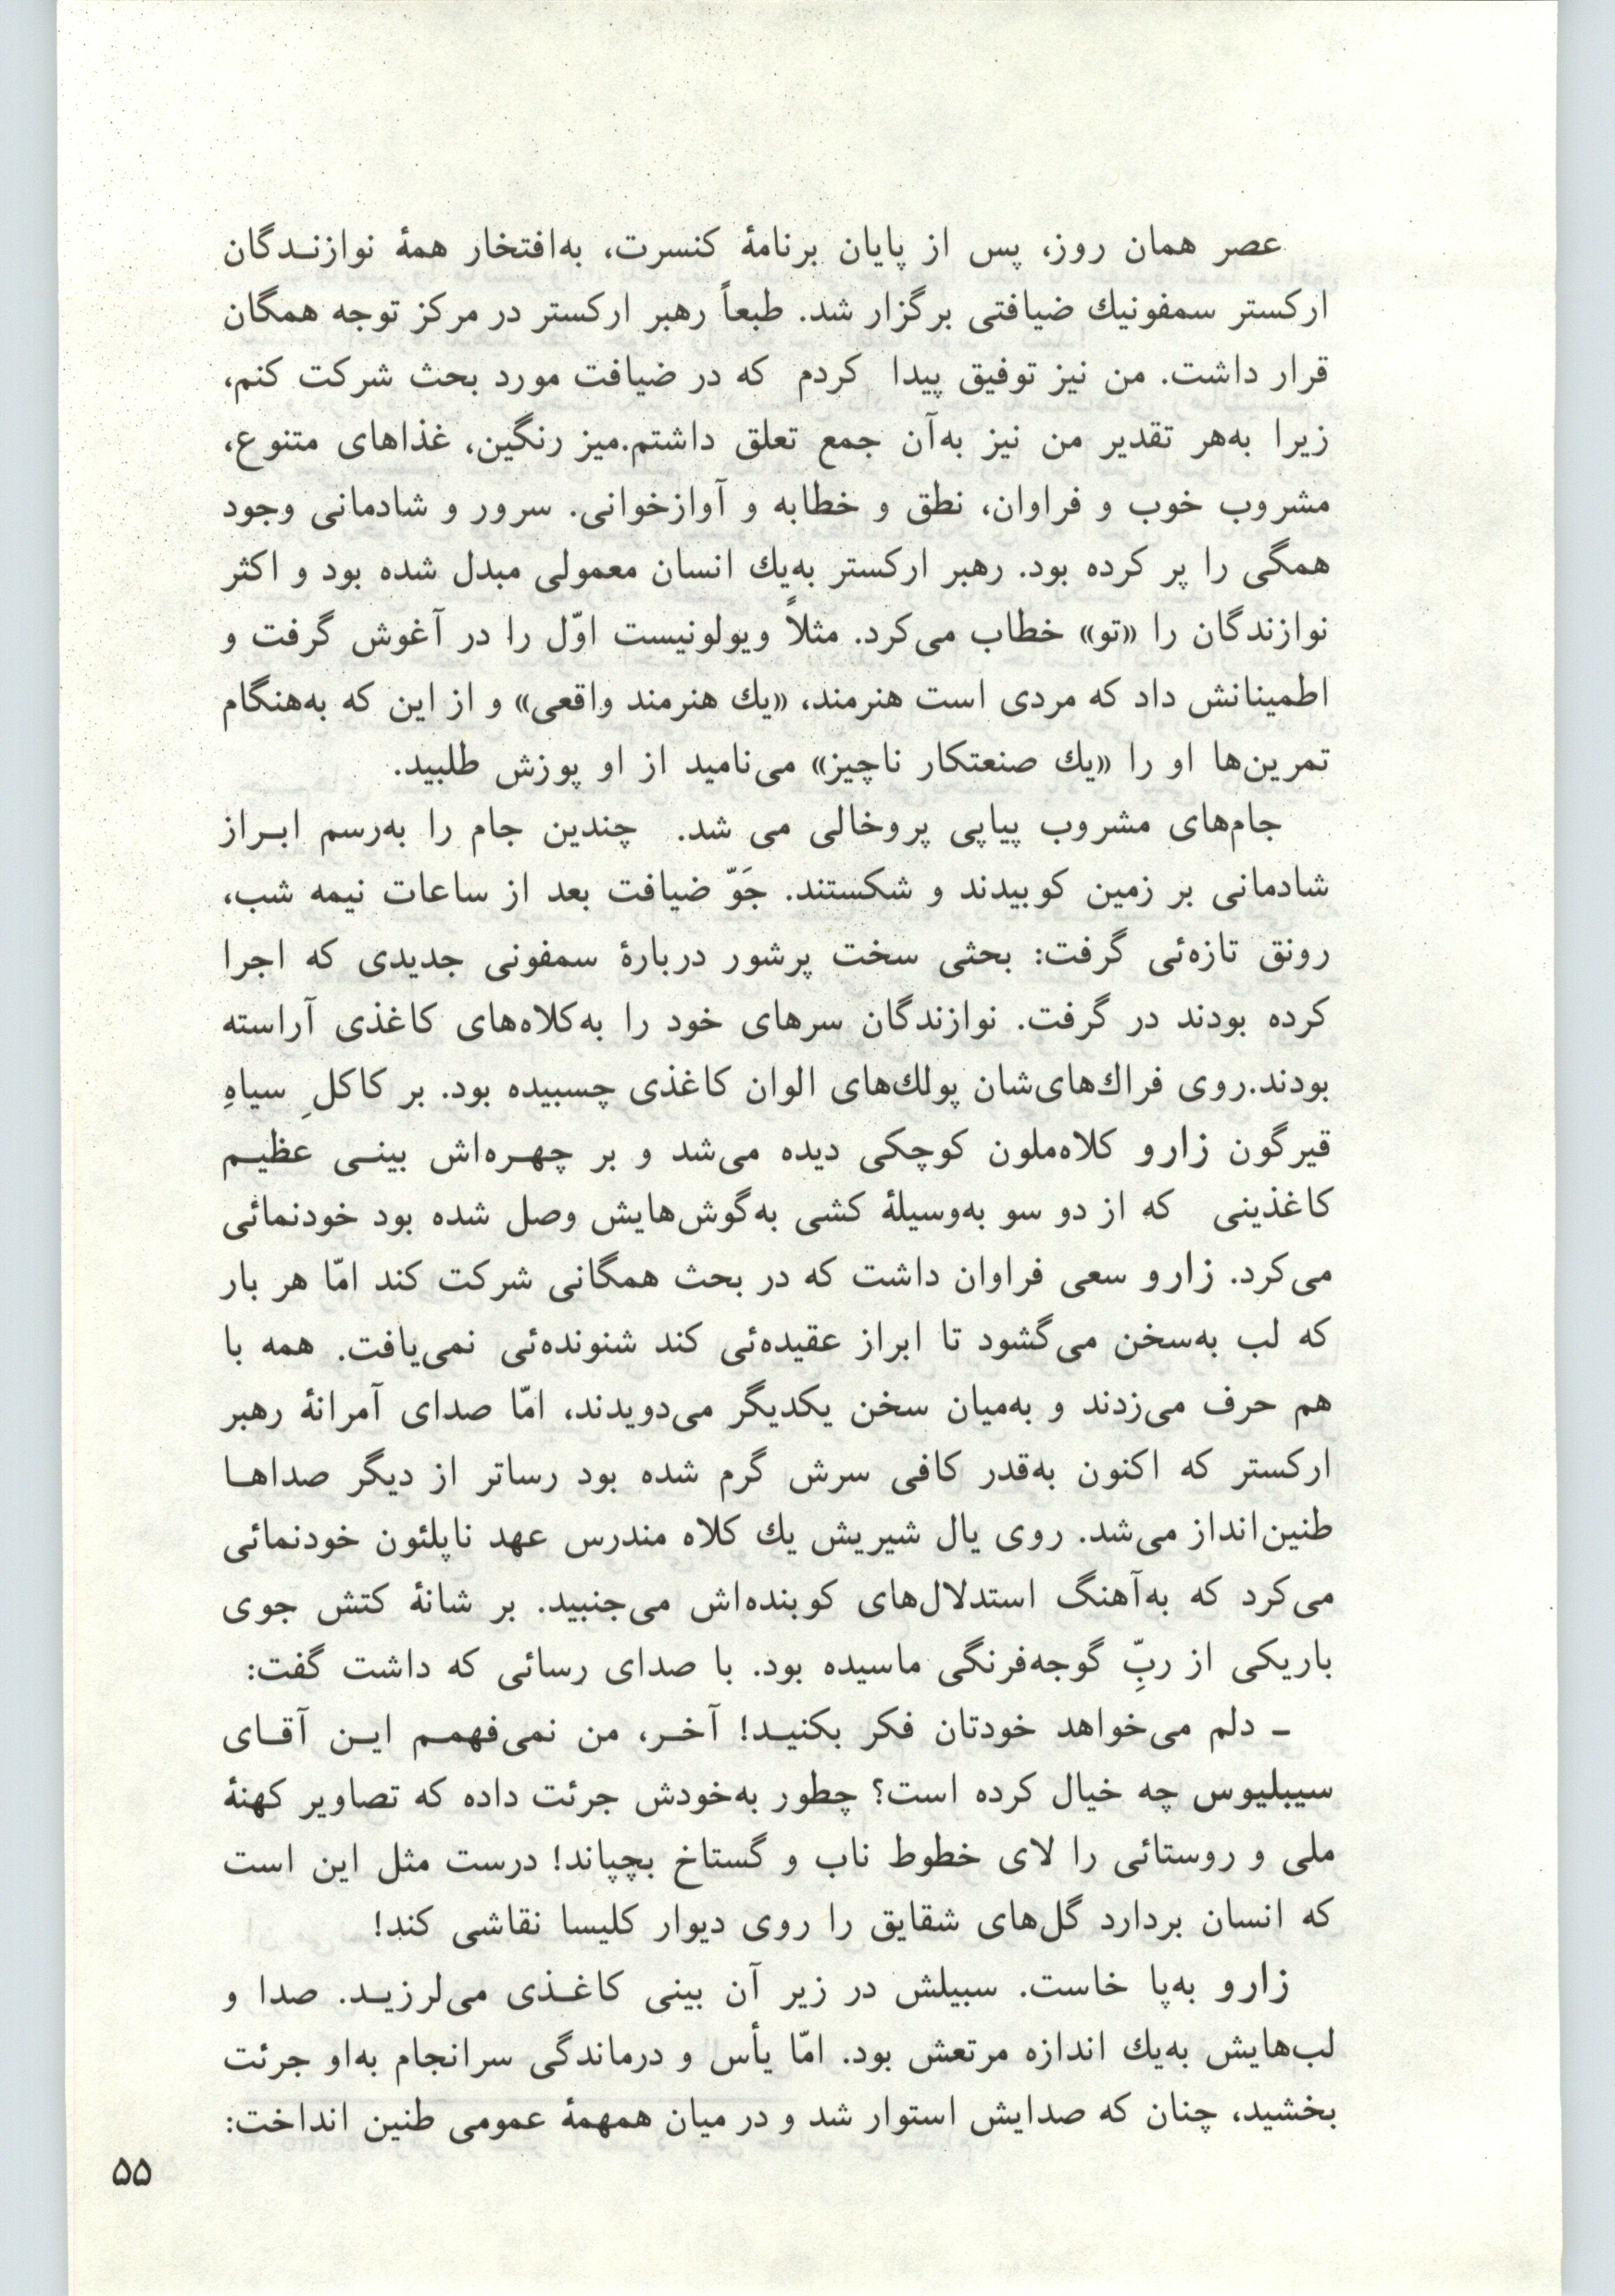 عصر همان روز، پس از پایان برنامهٔ کنسرت، به‌افتخار همهٔ نوازنـدگان
ارکستر سمفونیك ضیافتی برگزار شد. طبعاً رهبر ارکستر در مرکز توجه همگان
قرار داشت. من نیز توفیق پیدا کردم که در ضیافت مورد بحث شرکت کنم،
زیرا به‌هر تقدیر من نیز به‌آن جمع تعلق داشتم.میز رنگین، غذاهای متنوع،
مشروب خوب و فراوان، نطق و خطابه و آوازخوانی. سرور و شادمانی وجود
همگی را پر کرده بود. رهبر ارکستر به‌یك انسان معمولی مبدل شده بود و اکثر
نوازندگان را «تو» خطاب می‌کرد. مثلاً ویولونیست اوّل را در آغوش گرفت و
اطمینانش داد که مردی است هنرمند، «یك هنرمند واقعی» و از این که به‌هنگام
تمرین‌ها او را «یك صنعتکار ناچیز» می‌نامید از او پوزش طلبید.
جام‌های مشروب پیاپی پروخالی می شد. چندین جام را به‌رسم ابـراز
شادمانی بر زمین کوبیدند و شکستند. جَوّ ضیافت بعد از ساعات نیمه شب،
رونق تازه‌ئی گرفت: بحثی سخت پرشور دربارهٔ سمفونی جدیدی که اجرا
کرده بودند در گرفت. نوازندگان سرهای خود را به‌کلاه‌های کاغذی آراسته
بودند.روی فراك‌های‌شان پولك‌های الوان کاغذی چسبیده بود. بر کاکلِ سیاهِ
قیرگون زارو کلاه‌ملون کوچکی دیده می‌شد و بر چهـره‌اش بینـی عظیـم
کاغذینی که از دو سو به‌وسیلهٔ کشی به‌گوش‌هایش وصل شده بود خودنمائی
می‌کرد. زارو سعی فراوان داشت که در بحث همگانی شرکت کند امّا هر بار
که لب به‌سخن می‌گشود تا ابراز عقیده‌ئی کند شنونده‌ئی نمی‌یافت. همه با
هم حرف می‌زدند و به‌میان سخن یکدیگر می‌دویدند، امّا صدای آمرانهٔ رهبر
ارکستر که اکنون به‌قدر کافی سرش گرم شده بود رساتر از دیگر صداهـا
طنین‌انداز می‌شد. روی یال شیریش یك کلاه مندرس عهد ناپلئون خودنمائی
می‌کرد که به‌آهنگ استدلال‌های کوبنده‌اش می‌جنبید. بر شانهٔ کتش جوی
باریکی از ربِّ گوجه‌فرنگی ماسیده بود. با صدای رسائی که داشت گفت:
ـ دلم می‌خواهد خودتان فکر بکنیـد! آخـر، من نمی‌فهمـم ایـن آقـای
سیبلیوس چه خیال کرده است؟ چطور به‌خودش جرئت داده که تصاویر کهنهٔ
ملی و روستائی را لای خطوط ناب و گستاخ بچپاند! درست مثل این است
که انسان بردارد گل‌های شقایق را روی دیوار کلیسا نقاشی کند!
زارو به‌پا خاست. سبیلش در زیر آن بینی کاغـذی می‌لرزیـد. صدا و
لب‌هایش به‌یك اندازه مرتعش بود. امّا یأس و درماندگی سرانجام به‌او جرئت
بخشید، چنان که صدایش استوار شد و در میان همهمهٔ عمومی طنین انداخت:
۵۵